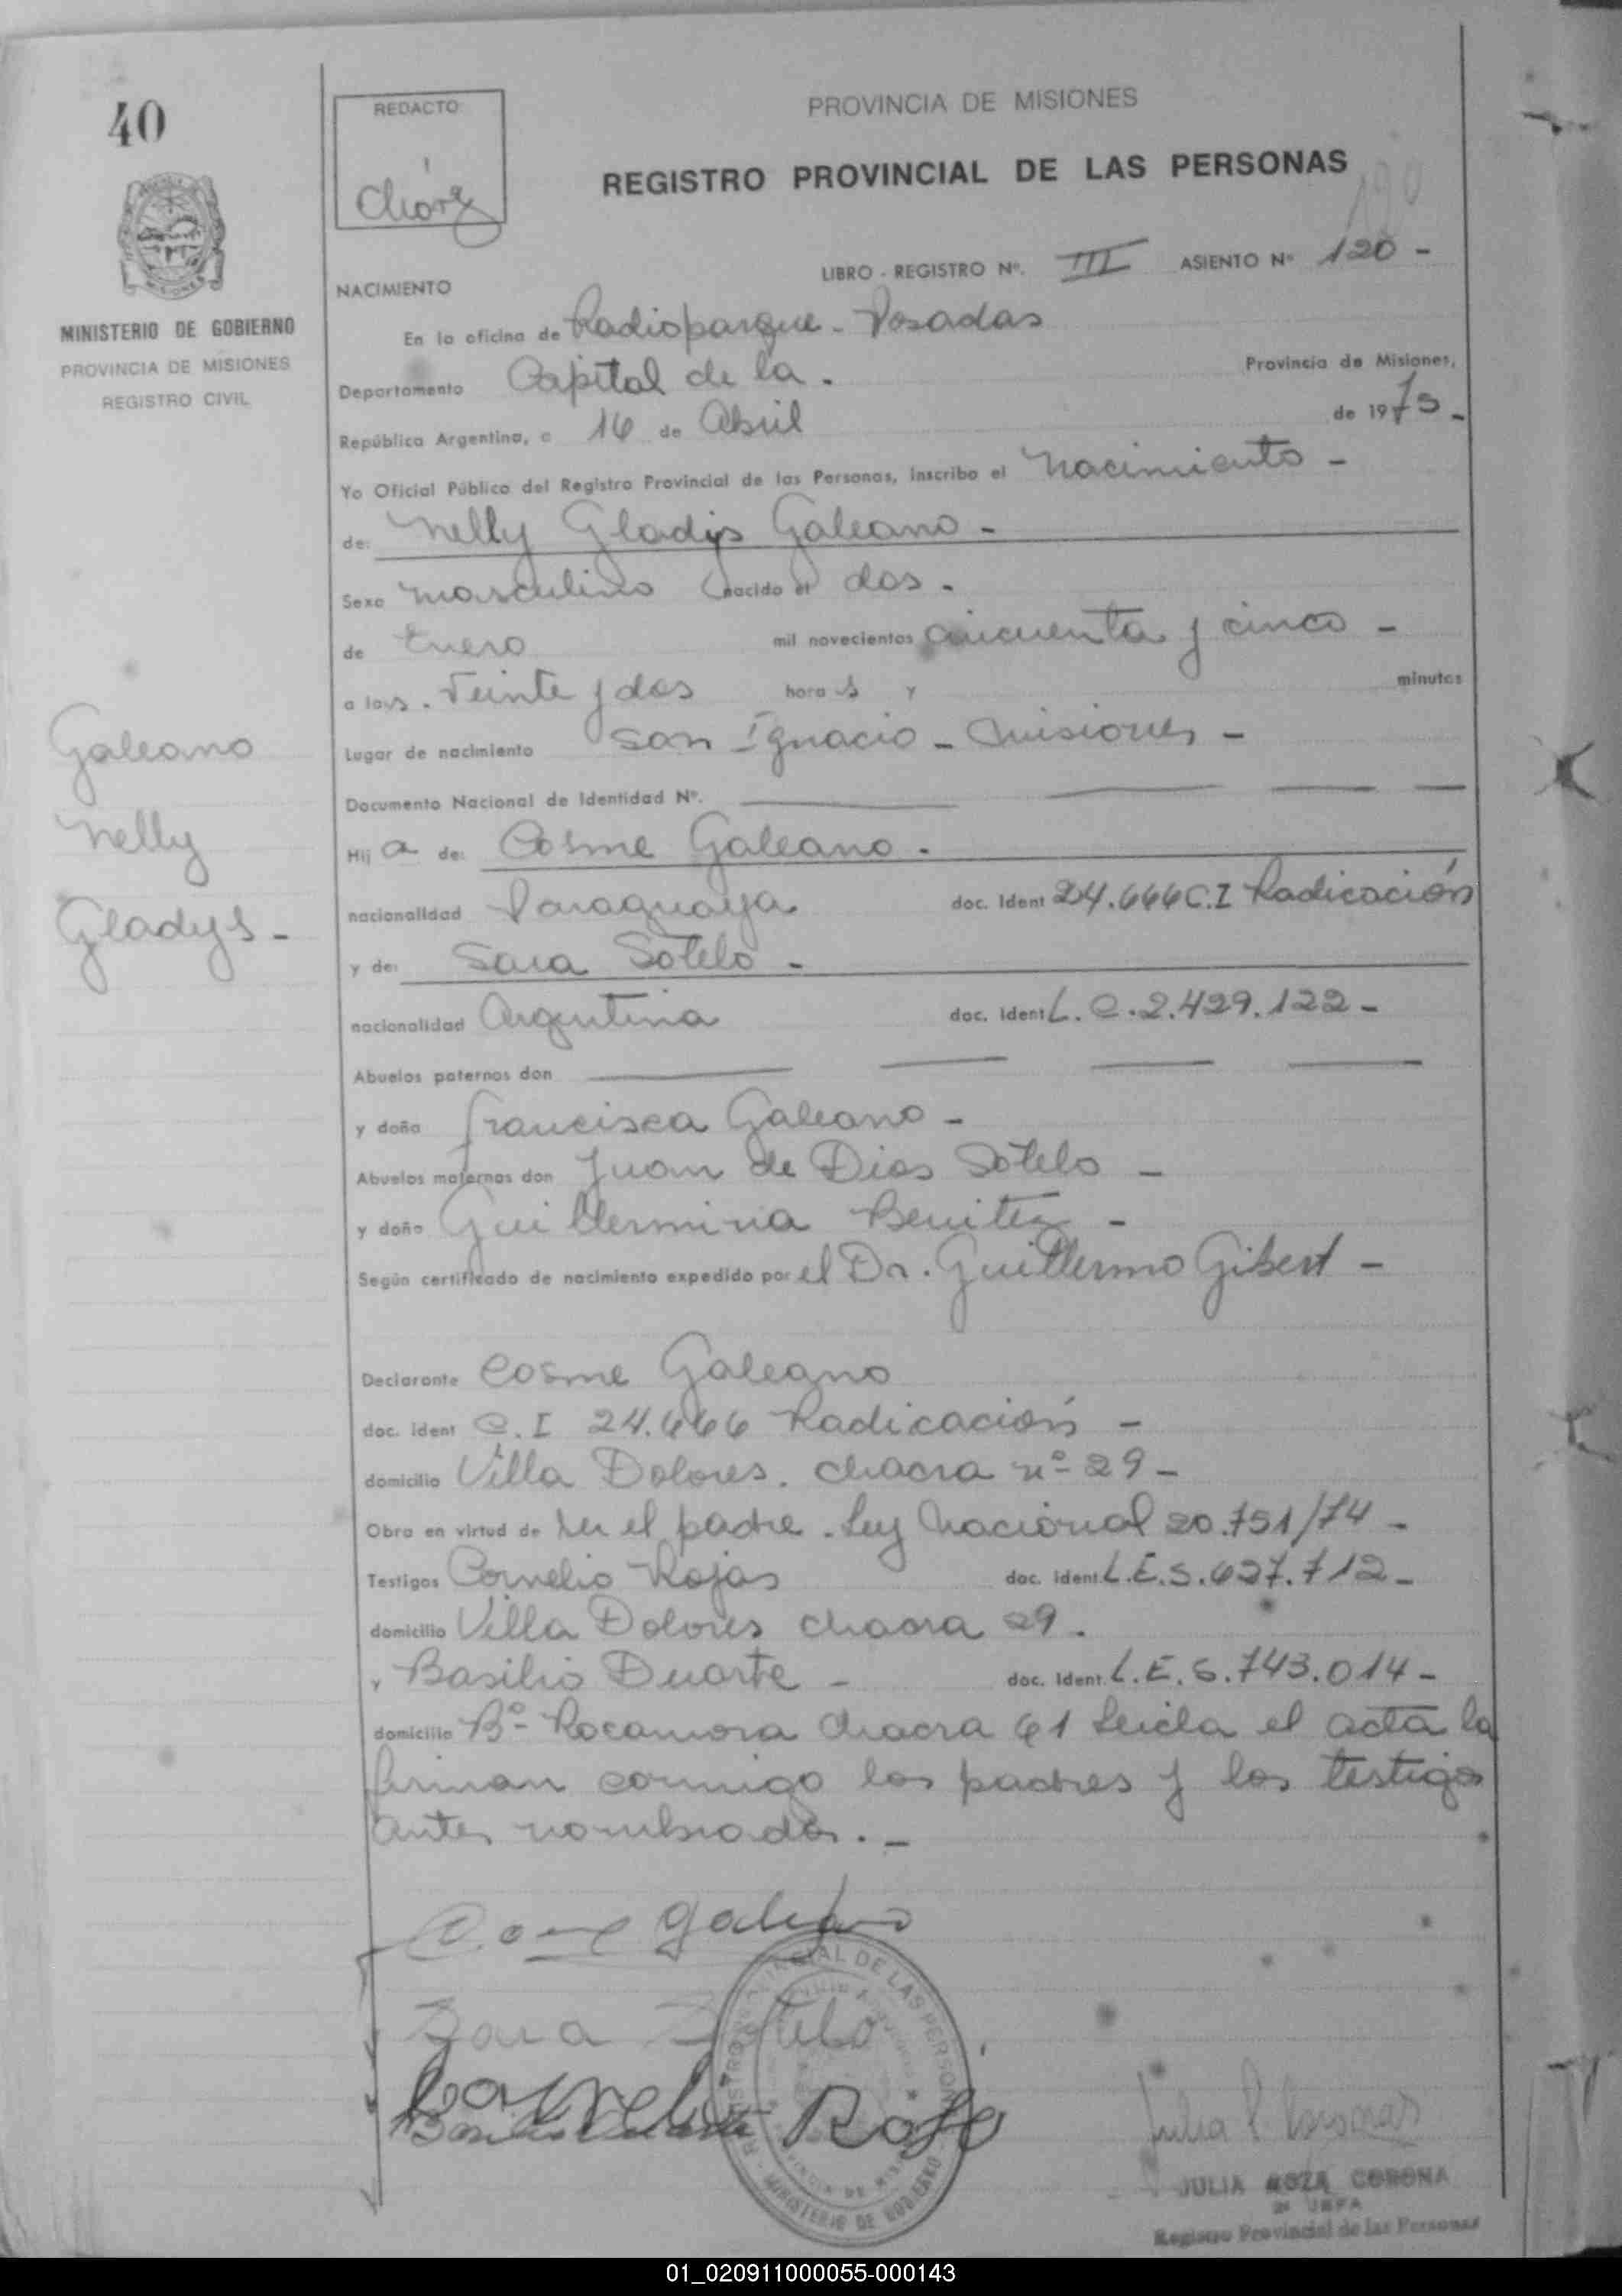 40
REDACTO
PROVINCIA DE MISIONES
REGISTRO PROVINCIAL DE LAS PERSONAS
LIBRO - REGISTRO Nº. III ASIENTO Nº 120 -
NACIMIENTO
MINISTERIO DE GOBIERNO
PROVINCIA DE MISIONES
REGISTRO CIVIL
En la oficina de Radioparque - Posadas
Departamento Capital de la . Provincia de Misiones,
República Argentina, a 16 de Abril de 1975 -
Yo Oficial Público del Registro Provincial de las Personas, inscribo el Nacimiento -
de: Nelly Gladys Galeano -
Sexo masculino nacido el dos -
de Enero mil novecientos cincuenta y cinco -
a las . Veinte y dos hora s y minutos
Lugar de nacimiento San Ignacio - Misiones -
Documento Nacional de Identidad Nº.
Galeano
Nelly
Gladys -
Hij a de: Cosme Galeano -
nacionalidad Paraguaya doc. Ident 24.666 C.I Radicación
y de: Sara Sotelo -
nacionalidad Argentina doc. Ident L. C. 2.429.122 -
Abuelos paternos don
y doña Francisca Galeano -
Abuelos maternos don Juan de Dios Sotelo -
y doña Guillermina Benitez -
Según certificado de nacimiento expedido por el Dr. Guillermo Gibert -
Declarante Cosme Galeano
doc. ident C. I 24.666 Radicación -
domicilio Villa Dolores . chacra nº 29 -
Obra en virtud de ser el padre . Ley Nacional 20.751/74 -
Testigos Cornelio Rojas doc. ident L.E.5.627.712 -
domicilio Villa Dolores chacra 29 .
y Basilio Duarte - doc. Ident. L.E. 5.743.014 -
domicilio Bº Rocamora chacra 61 Leida el acta la
firman conmigo los padres y los testigos
antes nombrados . -
Galeano
Sara Sotelo
Cornelio Rojas
JULIA ROZA CORONA
JEFA
Registro Provincial de las Personas
01_020911000055-000143